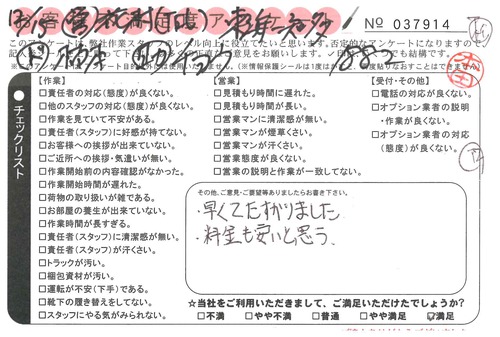 お客様満足度アンケート
No 037914
このアンケートは、弊社作業スタッフのレベル向上に役立てたいと思います。否定的なアンケートになりますが、
チェックリスト
【作業】
□責任者の対応(態度)が良くない。
□他のスタッフの対応(態度)が良くない。
□作業を見ていて不安がある。
□責任者(スタッフ)に好感が持てない。
□お客様への挨拶が出来ていない。
□ご近所への挨拶・気遣いが無い。
□作業開始前の内容確認がなかった。
□作業開始時間が遅れた。
□荷物の取り扱いが雑である。
□お部屋の養生が出来ていない。
□作業時間が長すぎる。
□責任者(スタッフ)に清潔感が無い。
□責任者(スタッフ)が汗くさい。
□トラックが汚い。
□梱包資材が汚い。
□運転が不安(下手)である。
□靴下の履き替えをしてない。
□スタッフにやる気がみられない。
【営業】
□見積もり時間に遅れた。
□見積もり時間が長い。
□営業マンに清潔感が無い。
□営業マンが煙草くさい。
□営業マンが汗くさい。
□営業態度が良くない。
□営業の説明と作業が一致してない。
【受付・その他】
□電話の対応が良くない。
□オプション業者の説明
・作業が良くない。
□オプション業者の対応
(態度)が良くない。
その他、ご意見・ご要望等ありましたらお書き下さい。
・早くてたすかりました
・料金も安いと思う
☆当社をご利用いただきまして、ご満足いただけたでしょうか?
□不満 □やや不満 □普通 □やや満足 ☑満足